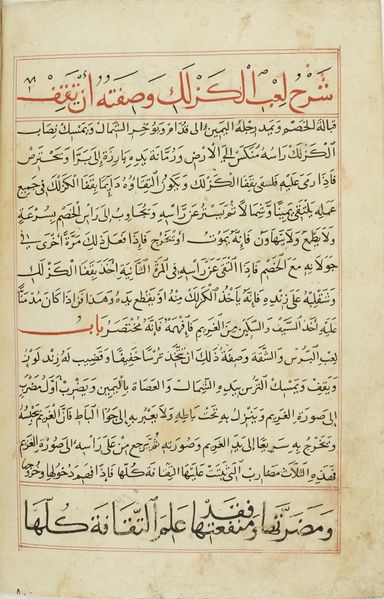 شرح لعب الكزلك وصفته ان يقف
قبالة الخصم ويمد رجله اليمين الى قدام ويوخر الشمال ويمسك نصاب
الكزلك راسه منكس الى الارض ورمانة يده بارزة الى برا ويحترس
فاذا رمى عليه فلتقى بقفا الكزلك ويكون التقاؤه دايما بقفا الكزلك في جميع
عمله يلتقي يمينا وشمالا ثم يستر عن راسه ويجاوب الى راس الخصم بسرعه
ولا يقطع ولا يتهاون فانه يموت او يتخرج فاذا فعل ذلك مرة اخرى في
جولانه مع الخصم فاذا التقى عن راسه في المرة الثانية اخذ بقفا الكزلك
وشنقله على زنده فانه ياخذ الكزلك منه او يقطع يده وهذا فن اذا كان مدمنا
عليه اخذ السيف والسكين من الغريم فافهمه فانه مختصر باب
لعب الترس والشقة وصفة ذلك ان يتخذ ترسا خفيفا وقضيب له زند لوز
ويقف ويمسك الترس بيده الشمال والعصاة باليمين ويضرب اول مضرب
الى صورة الغريم وينزل به تحت باطه ولا يعبر به الى جوا الباط فان الغريم يخطه
ويخرج به سريعا الى يد الغريم وصورته ثم يرجع من على راسه الى صورة الغريم
فهذه الثلاث مضارب التي بنيت عليها الثقافة كلها فاذا فهم دخولها وخروجها
ومضرتها ومنفعتها فقد علم الثقافة كلها